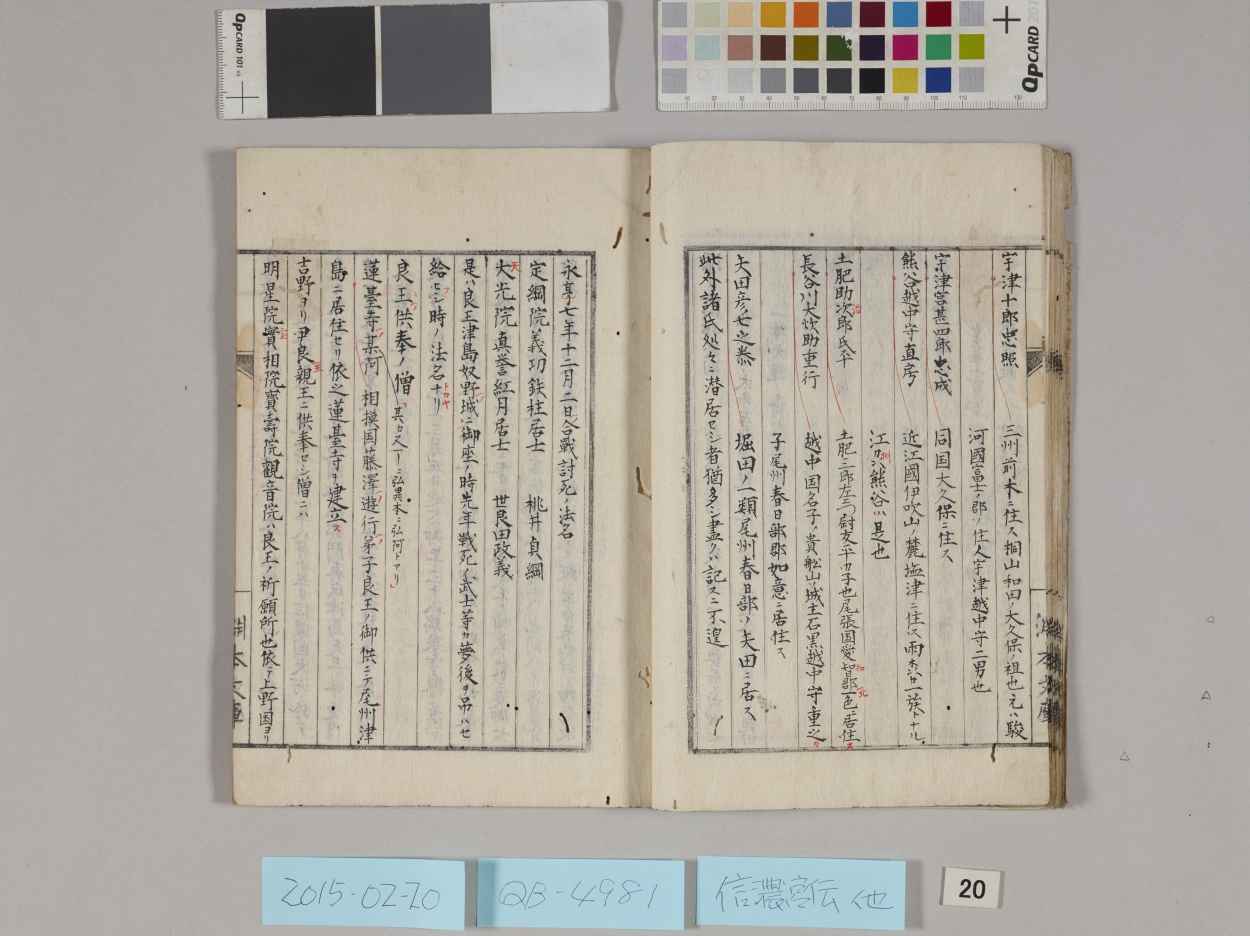 宇津十郎忠照
三州前木ニ住ス桐山和田ノ大久保ノ祖也元ハ駿
河國富士ノ郡ノ住人宇津越中守二男也
宇津宮甚四郎忠成
同国大久保ニ住ス
熊谷越中守直房
近江國伊吹山ノ麓塩津ニ住ス雨木ガ一族トナル
江州熊谷ハ是也
土肥助次郎氏平
土肥三郎左ヱ門尉友平カ子也尾張国愛智郡一色ニ居住ス
長谷川大炊助重行
越中国名子ノ貴舩山ノ城主石黒越中守重之カ
子尾州春日部郡如意ニ居住ス
矢田彦七之泰
堀田ノ一類尾州春日部ノ矢田ニ居ス
此外諸氏処々ニ潜居セシ者猶多シ盡クハ記スニ不遑
永享七年十二月二日合戰討死ノ法名
定綱院義功鉄柱居士 桃井貞綱
大光院真誉紅月居士 世良田政義
是ハ良王津島奴野城ニ御座ノ時先年戰死ノ武士等カ夢後ヲ吊ハセ
給ヒシ時ノ法名ナリ
良王供奉ノ僧
蓮臺寺某阿 相摸国藤澤遊行ノ弟子良王ノ御供ニテ尾州津
島ニ居住セリ依之蓮臺寺ヲ建立ス
吉野ヨリ尹良親王ニ供奉セシ僧ニハ
明星院實相院寳壽院觀音院ハ良王ノ祈願所也依テ上野国ヨリ
QPCARD 101 v3
QPCARD 201
2015-02-20
QB-4981
信濃宮伝 他
20